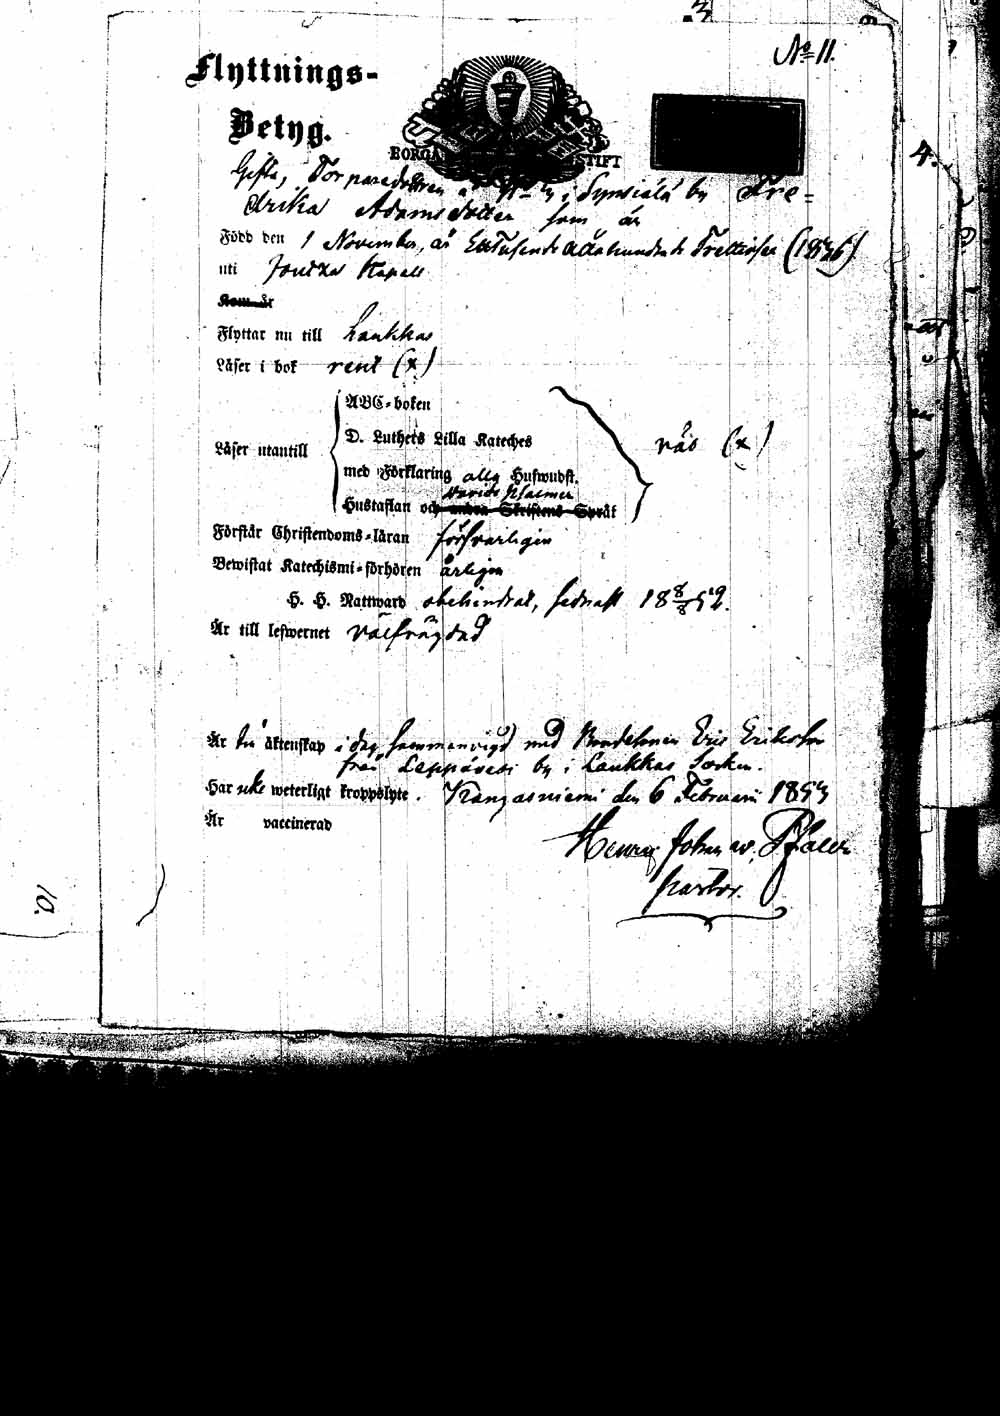 № 11.
Flyttnings-
Betyg.
BORGÅ STIFT
Gifta, Torparedottren i Synsiälä by Fre=
drika Adamsdotter som är
Född den 1 November, år Ettusende Åttahundrade Trettiosex (1836)
uti Joutza Kapell
Kom år
Flyttar nu till Laukkas
Läser i bok rent (x)
ABC-boken
Läser utantill D. Luthers Lilla Kateches nås (x)
med Förklaring alla Hufwudst.
Davids Psalmer
Hustaflan och andra Skriftens Språk
Förstår Christendoms-läran försvarligen
Bewistat Katechismi-förhören årligen
H. H. Nattward obehindrad, sednast 18 8/8 52.
Är till lefwernet välfrägdad
Är til äktenskap i dag sammanvigd med Bondesonen Eric Ericsson
från Leppävesi by i Laukkas Socken.
Har icke weterligt kroppslyte. Kangasniemi den 6 Februarii 1853
Är vaccinerad
Henric Johan av. Pfaler
Pastor.
4.
10.